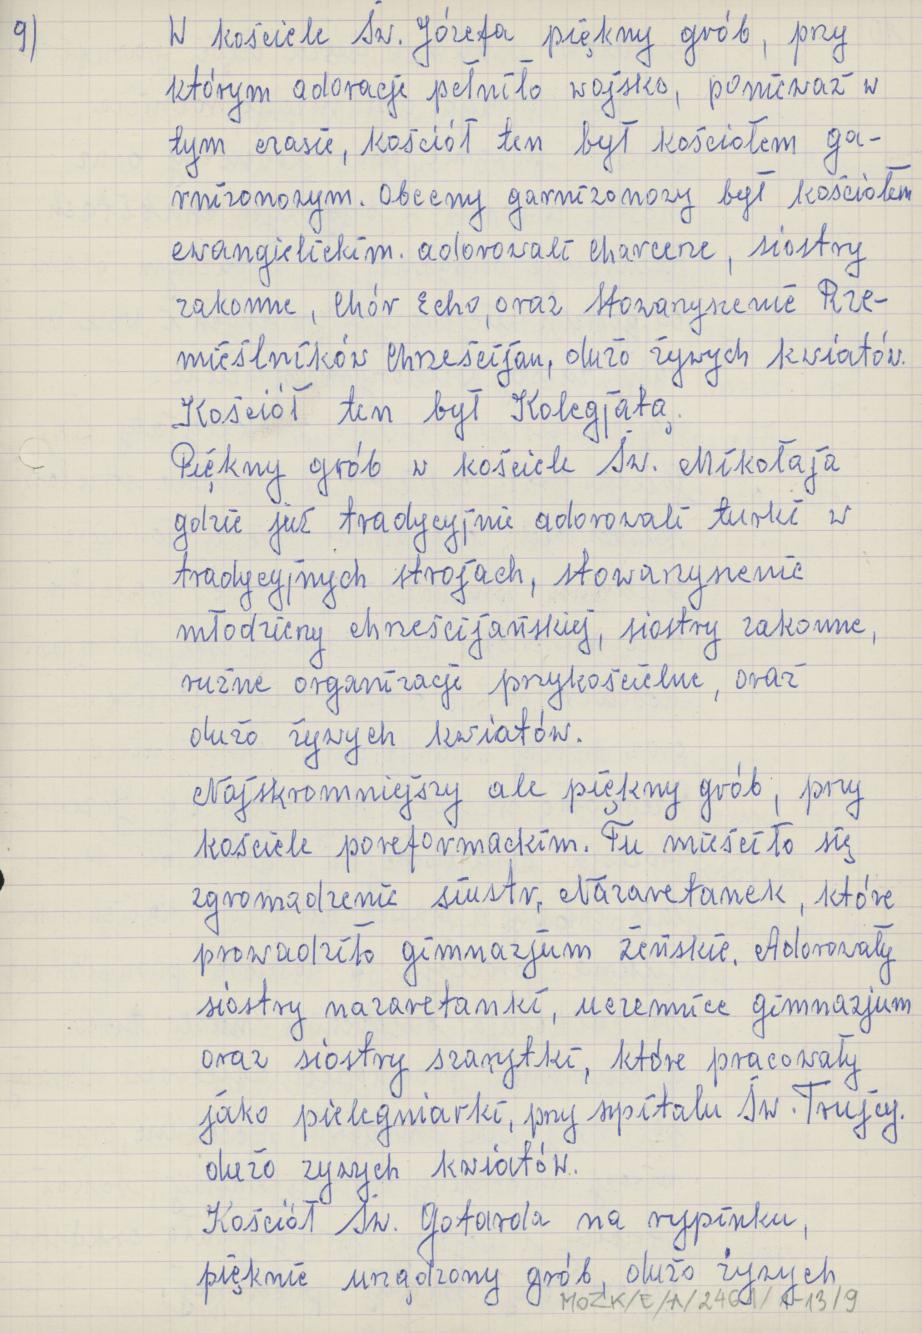 9)
W kościele Św. Józefa piękny grób, przy
którym adoracje pełniło wojsko, ponieważ w
tym czasie, kościół ten był kościołem ga-
rnizonowym. Obecny garnizonowy był kościołem
ewangielickim. adorowali charcerze, siostry
zakonne, Chór Echo, oraz Stowarzyszenie Rze-
mieślników Chrześcijan, dużo żywych kwiatów.
Kościół ten był Kolegjatą.
Piękny grób w kościele Św. Mikołaja
gdzie już tradycyjnie adorowali turki w
tradycyjnych strojach, stowarzyszenie
młodzieży chrześcijańskiej, siostry zakonne,
rużne organizacje przykościelne, oraz
dużo żywych kwiatów.
Najskromniejszy ale piękny grób, przy
kościele poreformackim. Tu mieściło się
zgromadzenie siustr, Nazaretanek, które
prowadziło gimnazjum żeńskie. Adorowały
siostry nazaretanki, uczennice gimnazjum
oraz siostry szarytki, które pracowały
jako pielegniarki, przy szpitalu Św. Trujcy.
dużo zywych kwiatów.
Kościół Św. Gotarda na rypinku,
pięknie urządzony grób, dużo żywych
MOZK/E/A/246 / 1-13/9